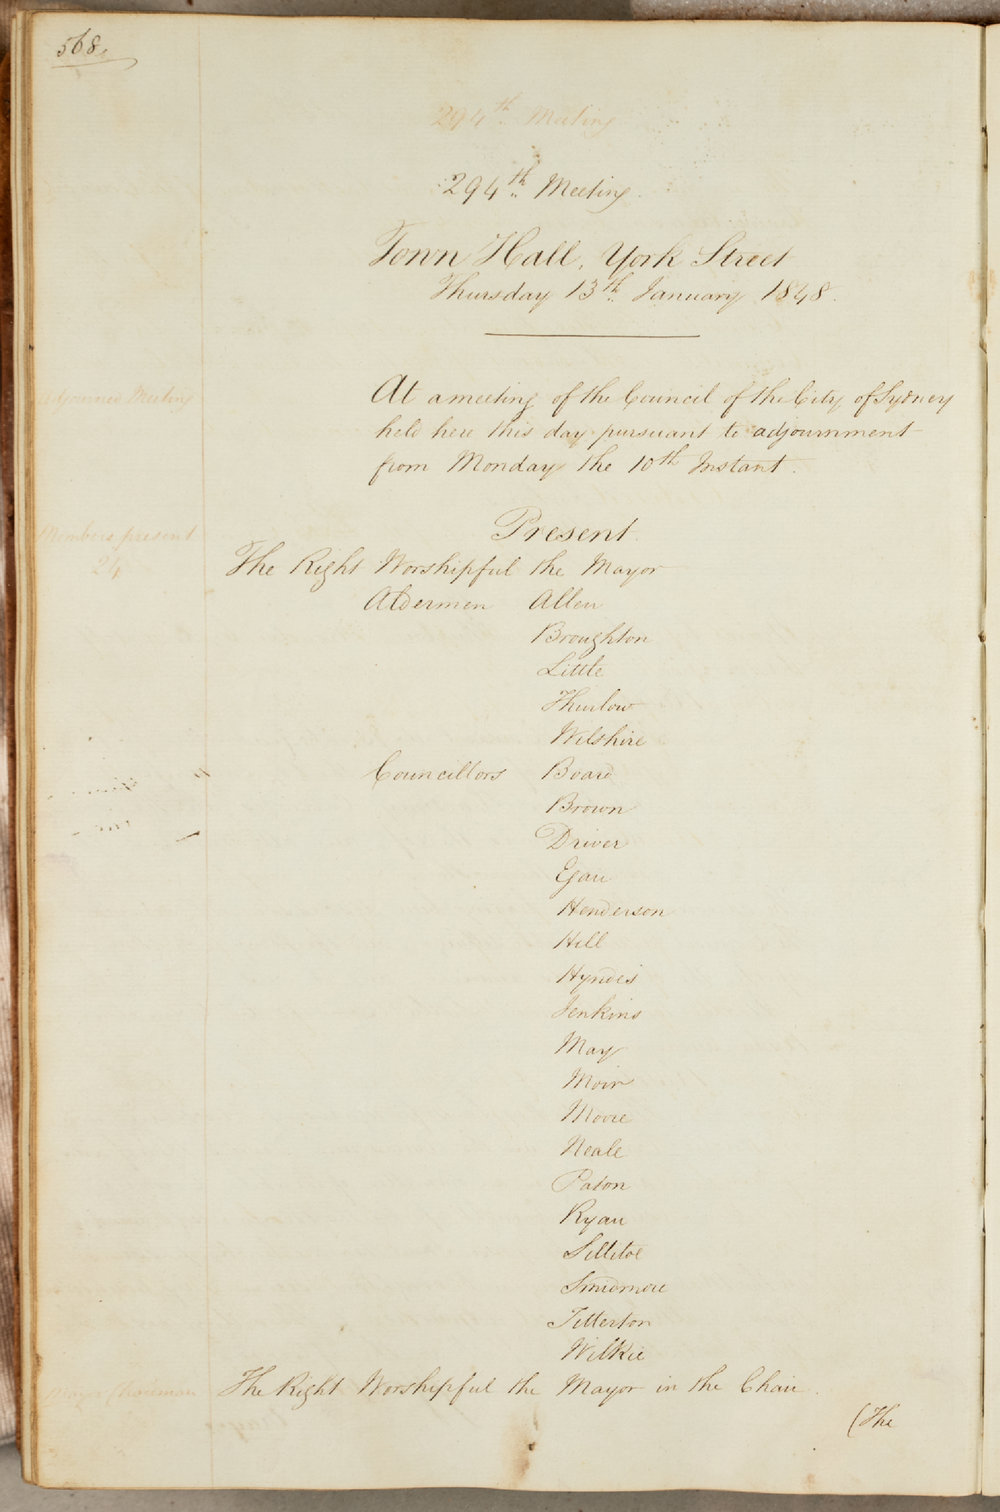 568.
294th Meeting
294th Meeting.
Town Hall, York Street
Thursday 13th January 1848.
Adjourned Meeting
At a meeting of the Council of the City of Sydney
held here this day pursuant to adjournment
from Monday the 10th Instant.
Members present
24
Present
The Right Worshipful the Mayor
Aldermen Allen
Broughton
Little
Thurlow
Wilshire
Councillors Board
Brown
Driver
Egan
Henderson
Hill
Hyndes
Jenkins
May
Moir
Moore
Neale
Paton
Ryan
Sillitoe
Smidmore
Titterton
Wilkie
Mayor Chairman
The Right Worshipful the Mayor in the Chair.
(The